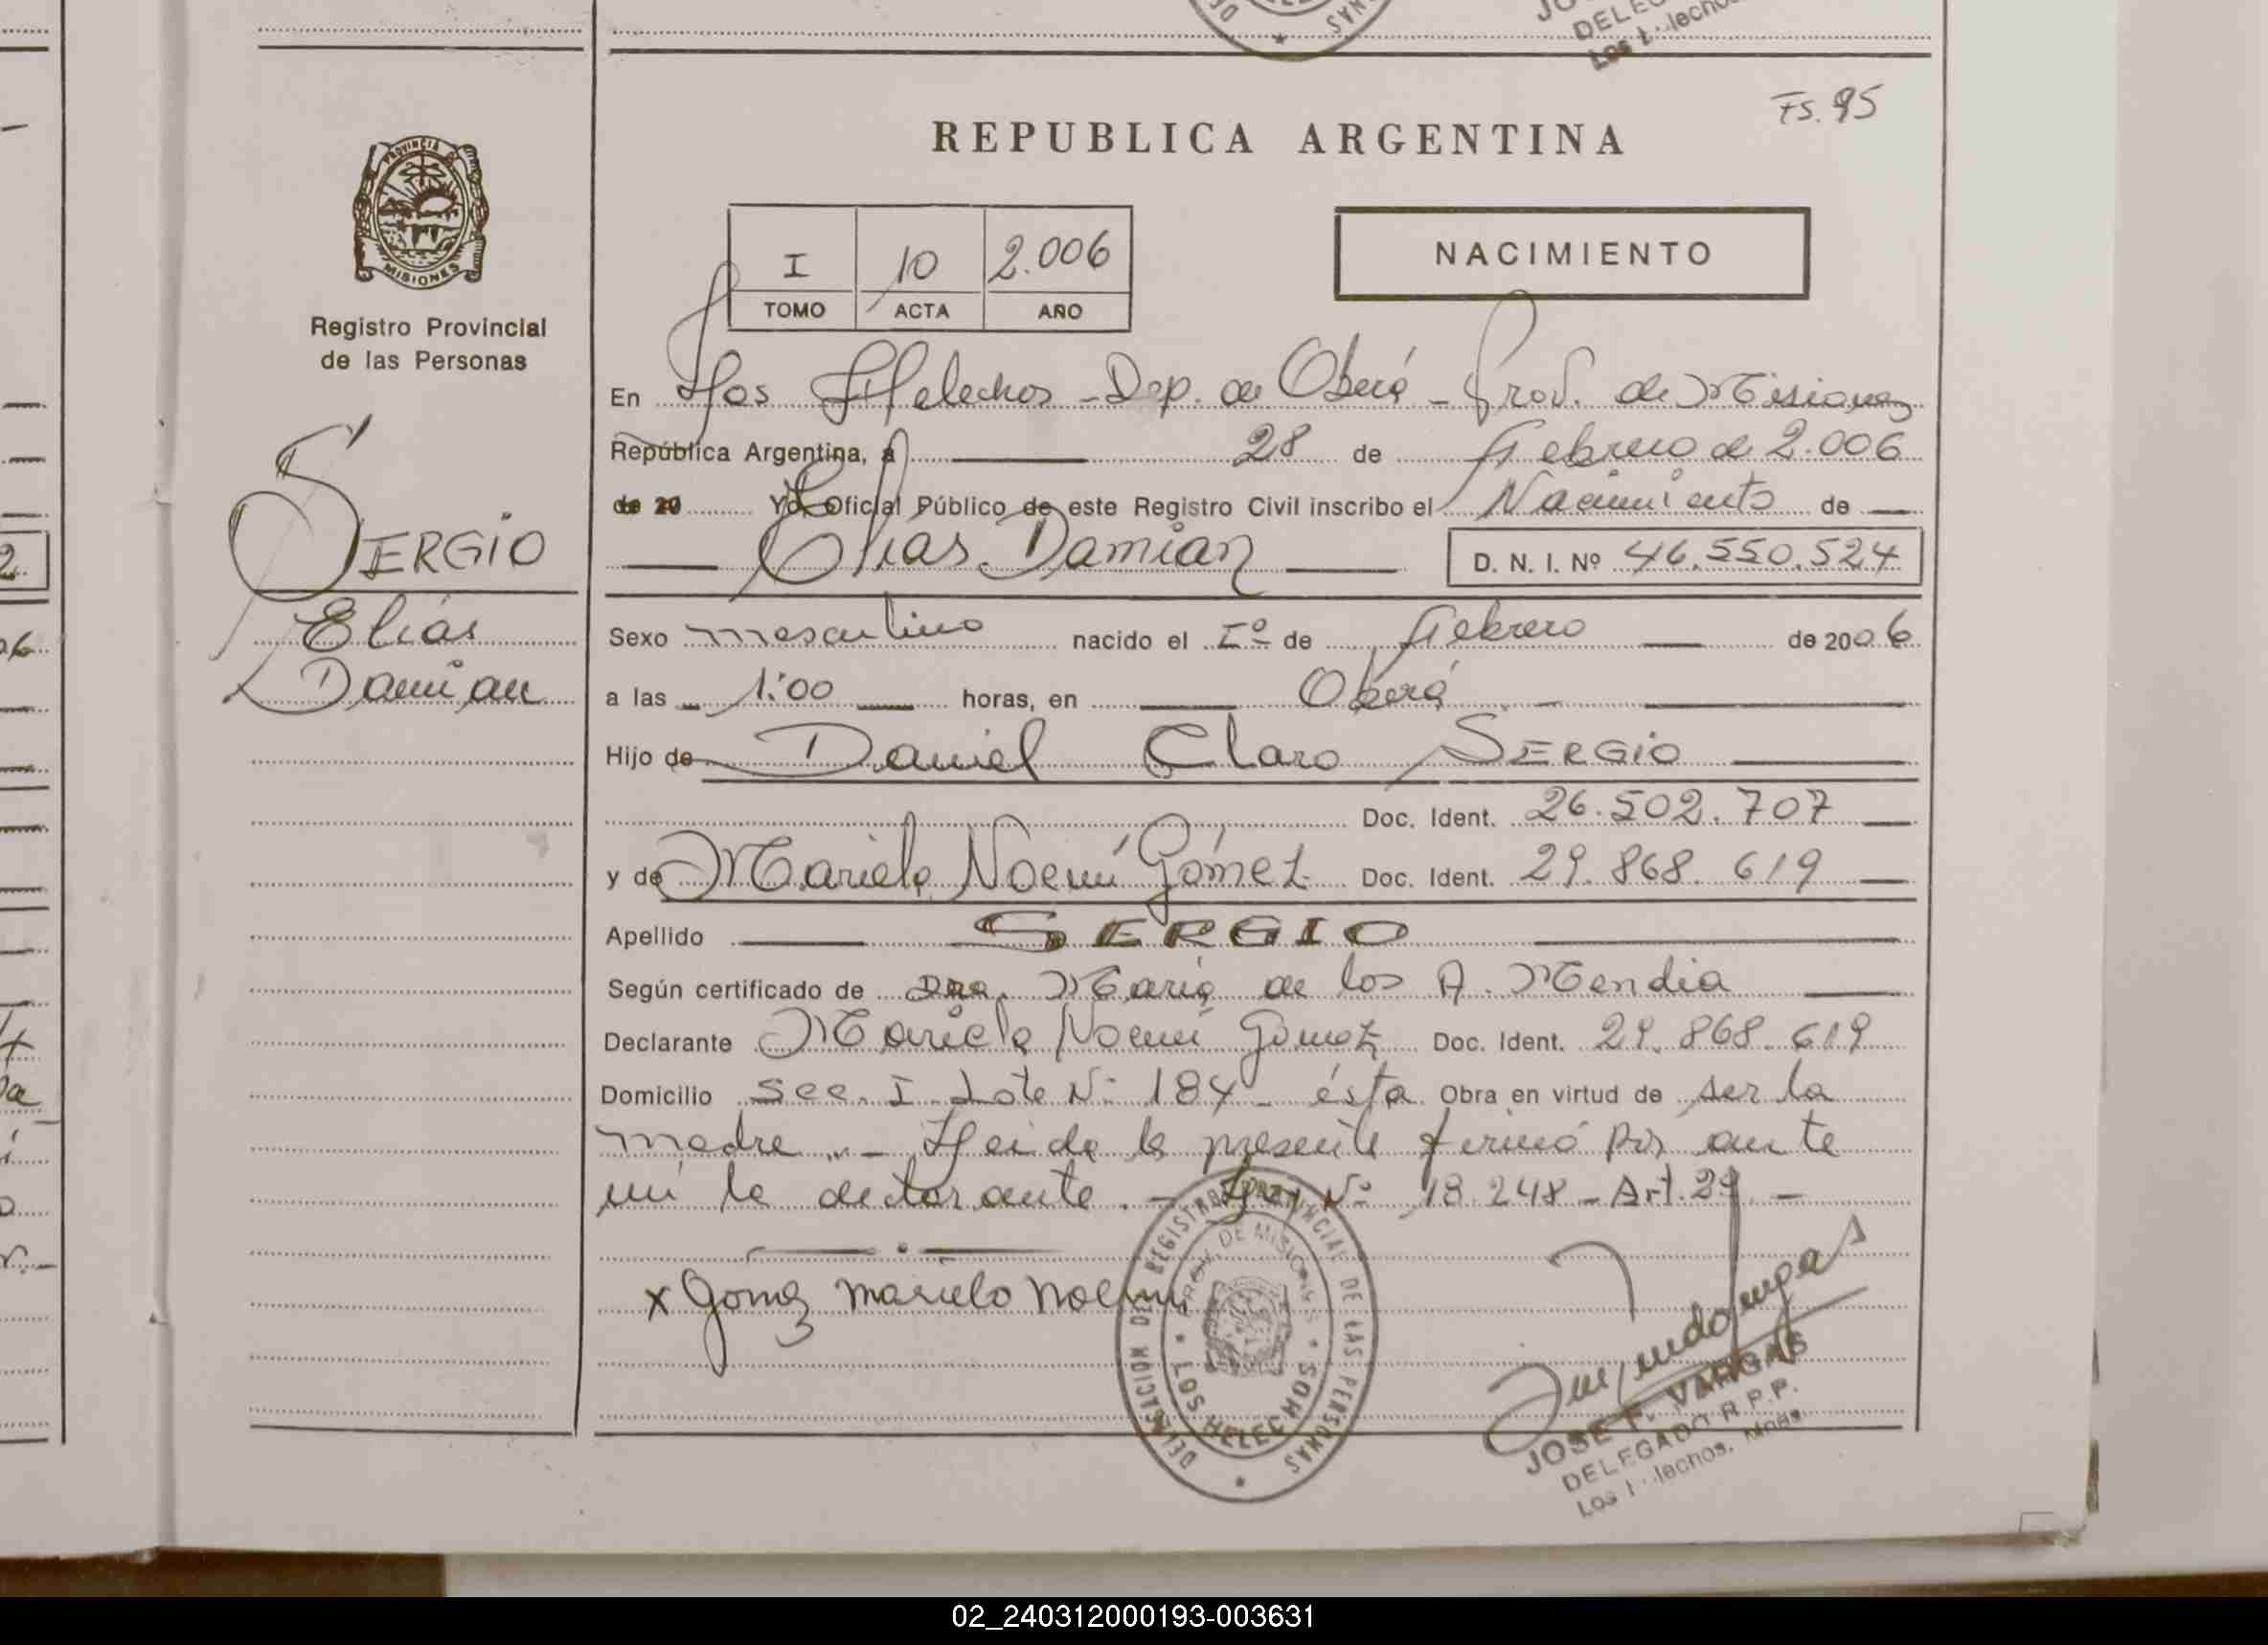 Fs. 95
REPUBLICA ARGENTINA
PROVINCIA D
MISIONES
Registro Provincial
de las Personas
I 10 2.006
TOMO ACTA AÑO
NACIMIENTO
SERGIO
Elías
Damian
En Los Helechos - Dep. de Oberá - Prov. de Misiones
República Argentina, a 28 de Febrero de 2.006
de 20 Yo, Oficial Público de este Registro Civil inscribo el Nacimiento de
Elías Damian D. N. I. Nº 46.550.524
Sexo masculino nacido el Iº de Febrero de 2006
a las 1:00 horas, en Oberá
Hijo de Daniel Claro SERGIO
Doc. Ident. 26.502.707
y de Mariela Noemí Gómez Doc. Ident. 29.868.619
Apellido SERGIO
Según certificado de Dra. María de los A. Mendia
Declarante Mariela Noemí Gómez Doc. Ident. 29.868.619
Domicilio Sec. I Lote Nº 184 - ésta Obra en virtud de ser la
madre - Leída la presente firmó por ante
mí la declarante. - Ley Nº 18.248 - Art. 29 -
x Gomez Mariela Noemi
DELEGACION DEL REGISTRO PROVINCIAL DE LAS PERSONAS
PROV. DE MISIONES
LOS HELECHOS
JOSE F. VARGAS
DELEGADO R.P.P.
Los H lechos, Mnes.
02_240312000193-003631